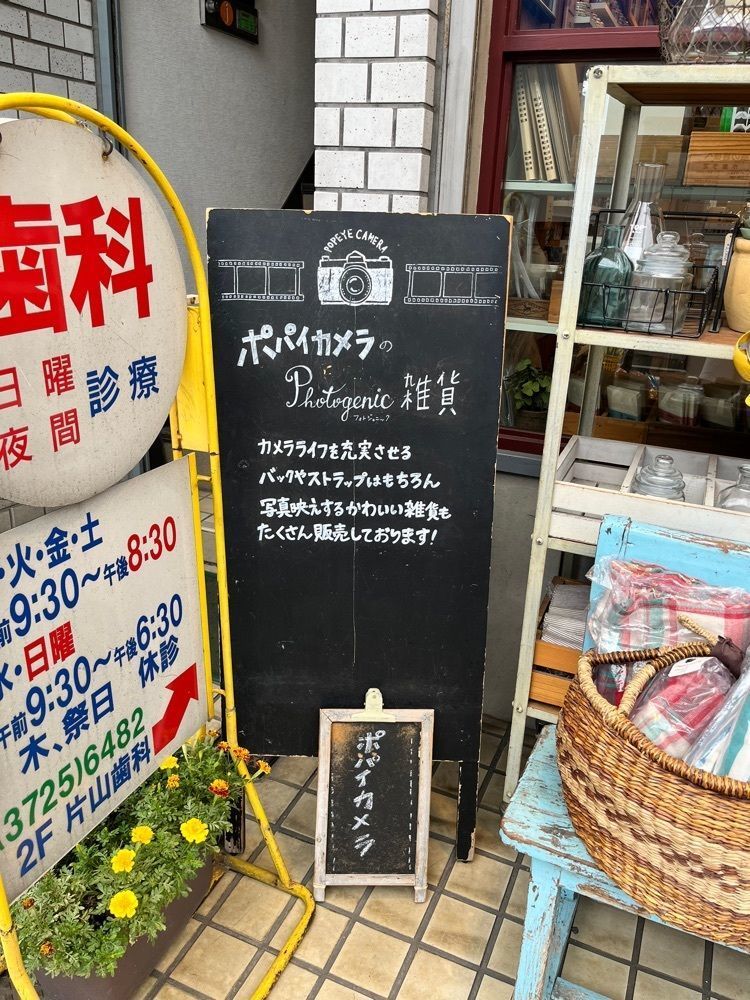 歯科
日曜
夜間
診療
・火・金・土
前9:30～午後8:30
水・日曜
午前9:30～午後6:30
木、祭日 休診
3725)6482
2F 片山歯科
POPEYE CAMERA
ポパイカメラの
Photogenic 雑貨
フォトジェニック
カメラライフを充実させる
バックやストラップはもちろん
写真映えするかわいい雑貨も
たくさん販売しております!
ポパイカメラ